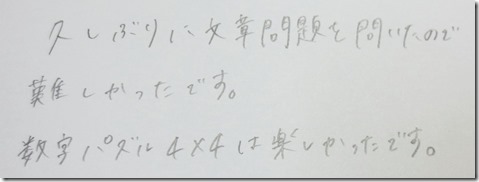 久しぶりに文章問題を問いたので
難しかったです。
数字パズル4×4は楽しかったです。